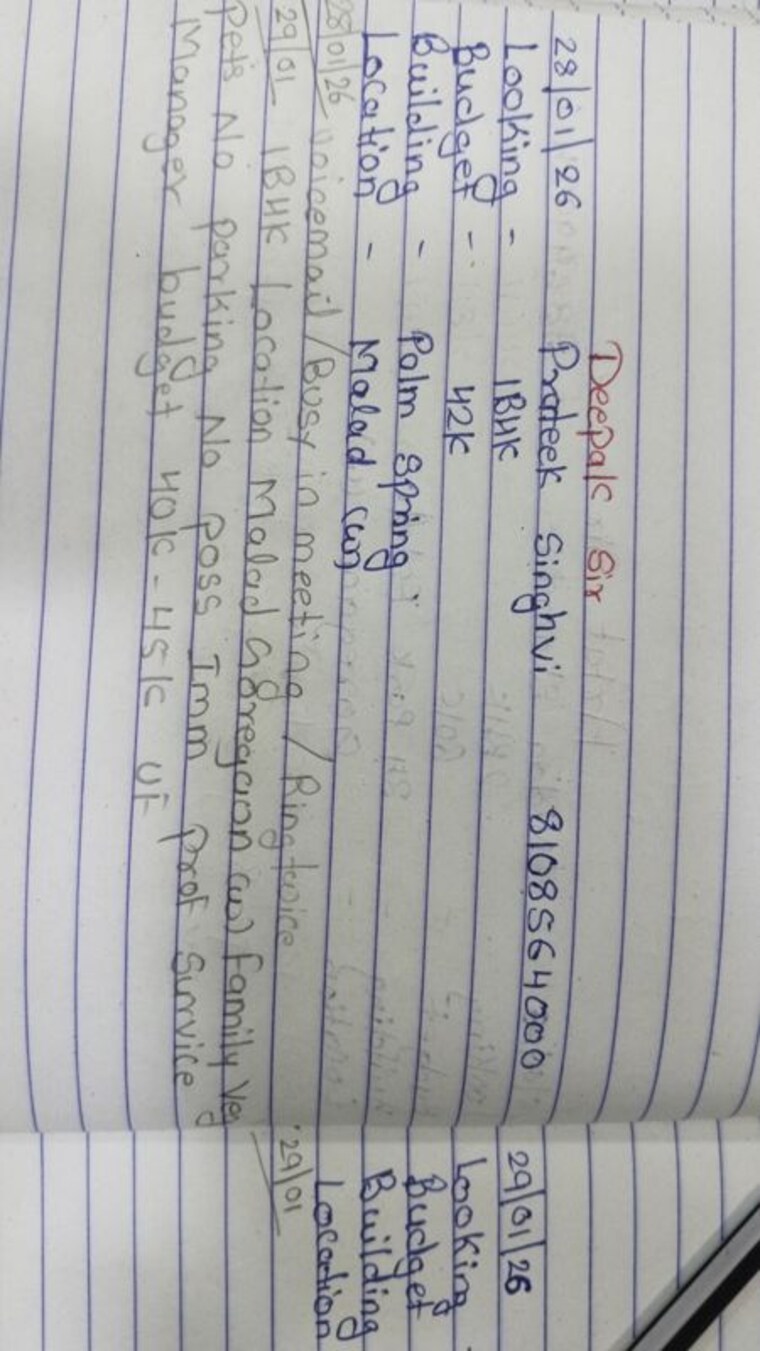 Deepak Sir
28/01/26 Prateek Singhvi 8108564000
Looking - 1BHK
Budget - 42K
Building - Palm Spring
Location - Malad (w)
28/01/26 voicemail / Busy in meeting / Ring twice
29/01 1BHK Location Malad Goregaon (w) family Veg
Pets No parking No poss Imm Prof Survice
Manager budget 40K - 45K UF
29/01/26
Looking -
Budget
Building
29/01 Location